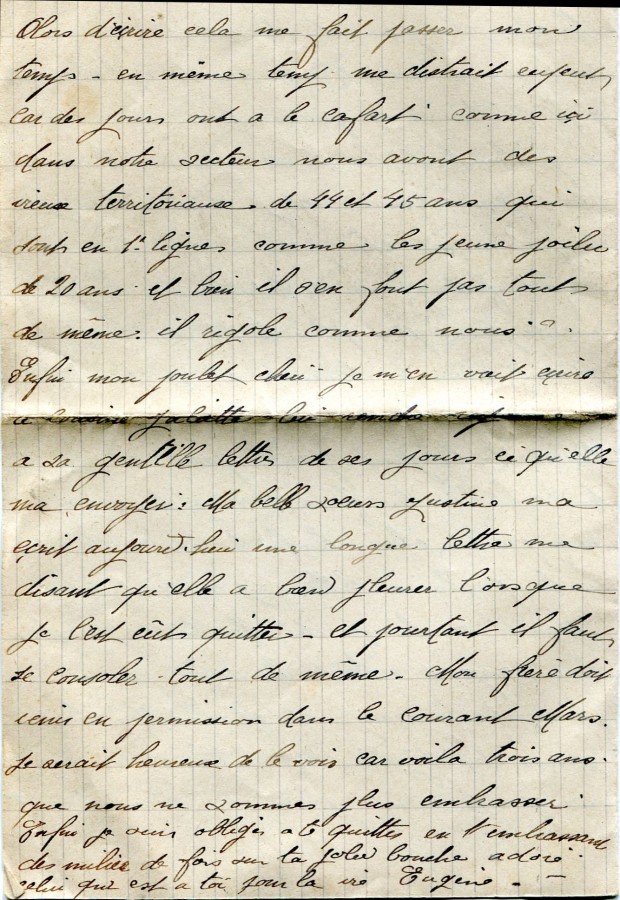 Alors d'écrire cela me fait passer mon
temps - en même temp me distrait enfent
car des jours ont a le cafart comme ici
dans notre secteur nous avont des
vieux territoriause. de 44 et 45 ans qui
sont en 1e lignes comme les jeune poilu
de 20 ans. et bien il s'en font pas tout
de même. il rigole comme nous.
Enfin mon poulet cheri je m'en vait écrire
a cousine Juliette lui rendre
a sa gentille lettre de ses jours ci qu'elle
m'a envoyer: Ma belle soeurs Justine m'a
écrit aujourd'hui une longue lettre me
disant qu'elle a bien pleurer l'orsque
je l'est eût quitter - et pourtant il faut
se consoler tout de même. Mon frère doit
venir en permission dans le courant Mars.
je serait heureux de le voir car voila trois ans.
que nous ne sommes plus embrasser
Enfin je suis obliger a te quitter en t'embrassant
des milier de fois sur ta jolie bouche adoré
celui qui est a toi pour la vie Eugène. -